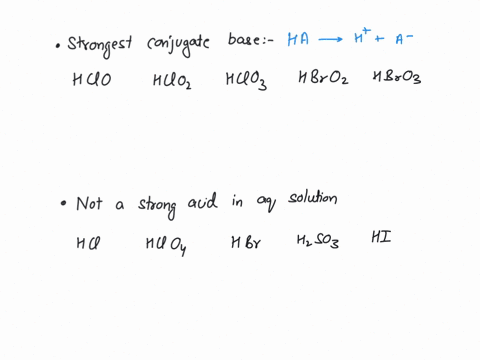 • Strongest conjugate base:- HA → H+ + A-
HClO HClO2 HClO3 HBrO2 HBrO3
• Not a strong acid in aq solution
HCl HClO4 HBr H2SO3 HI